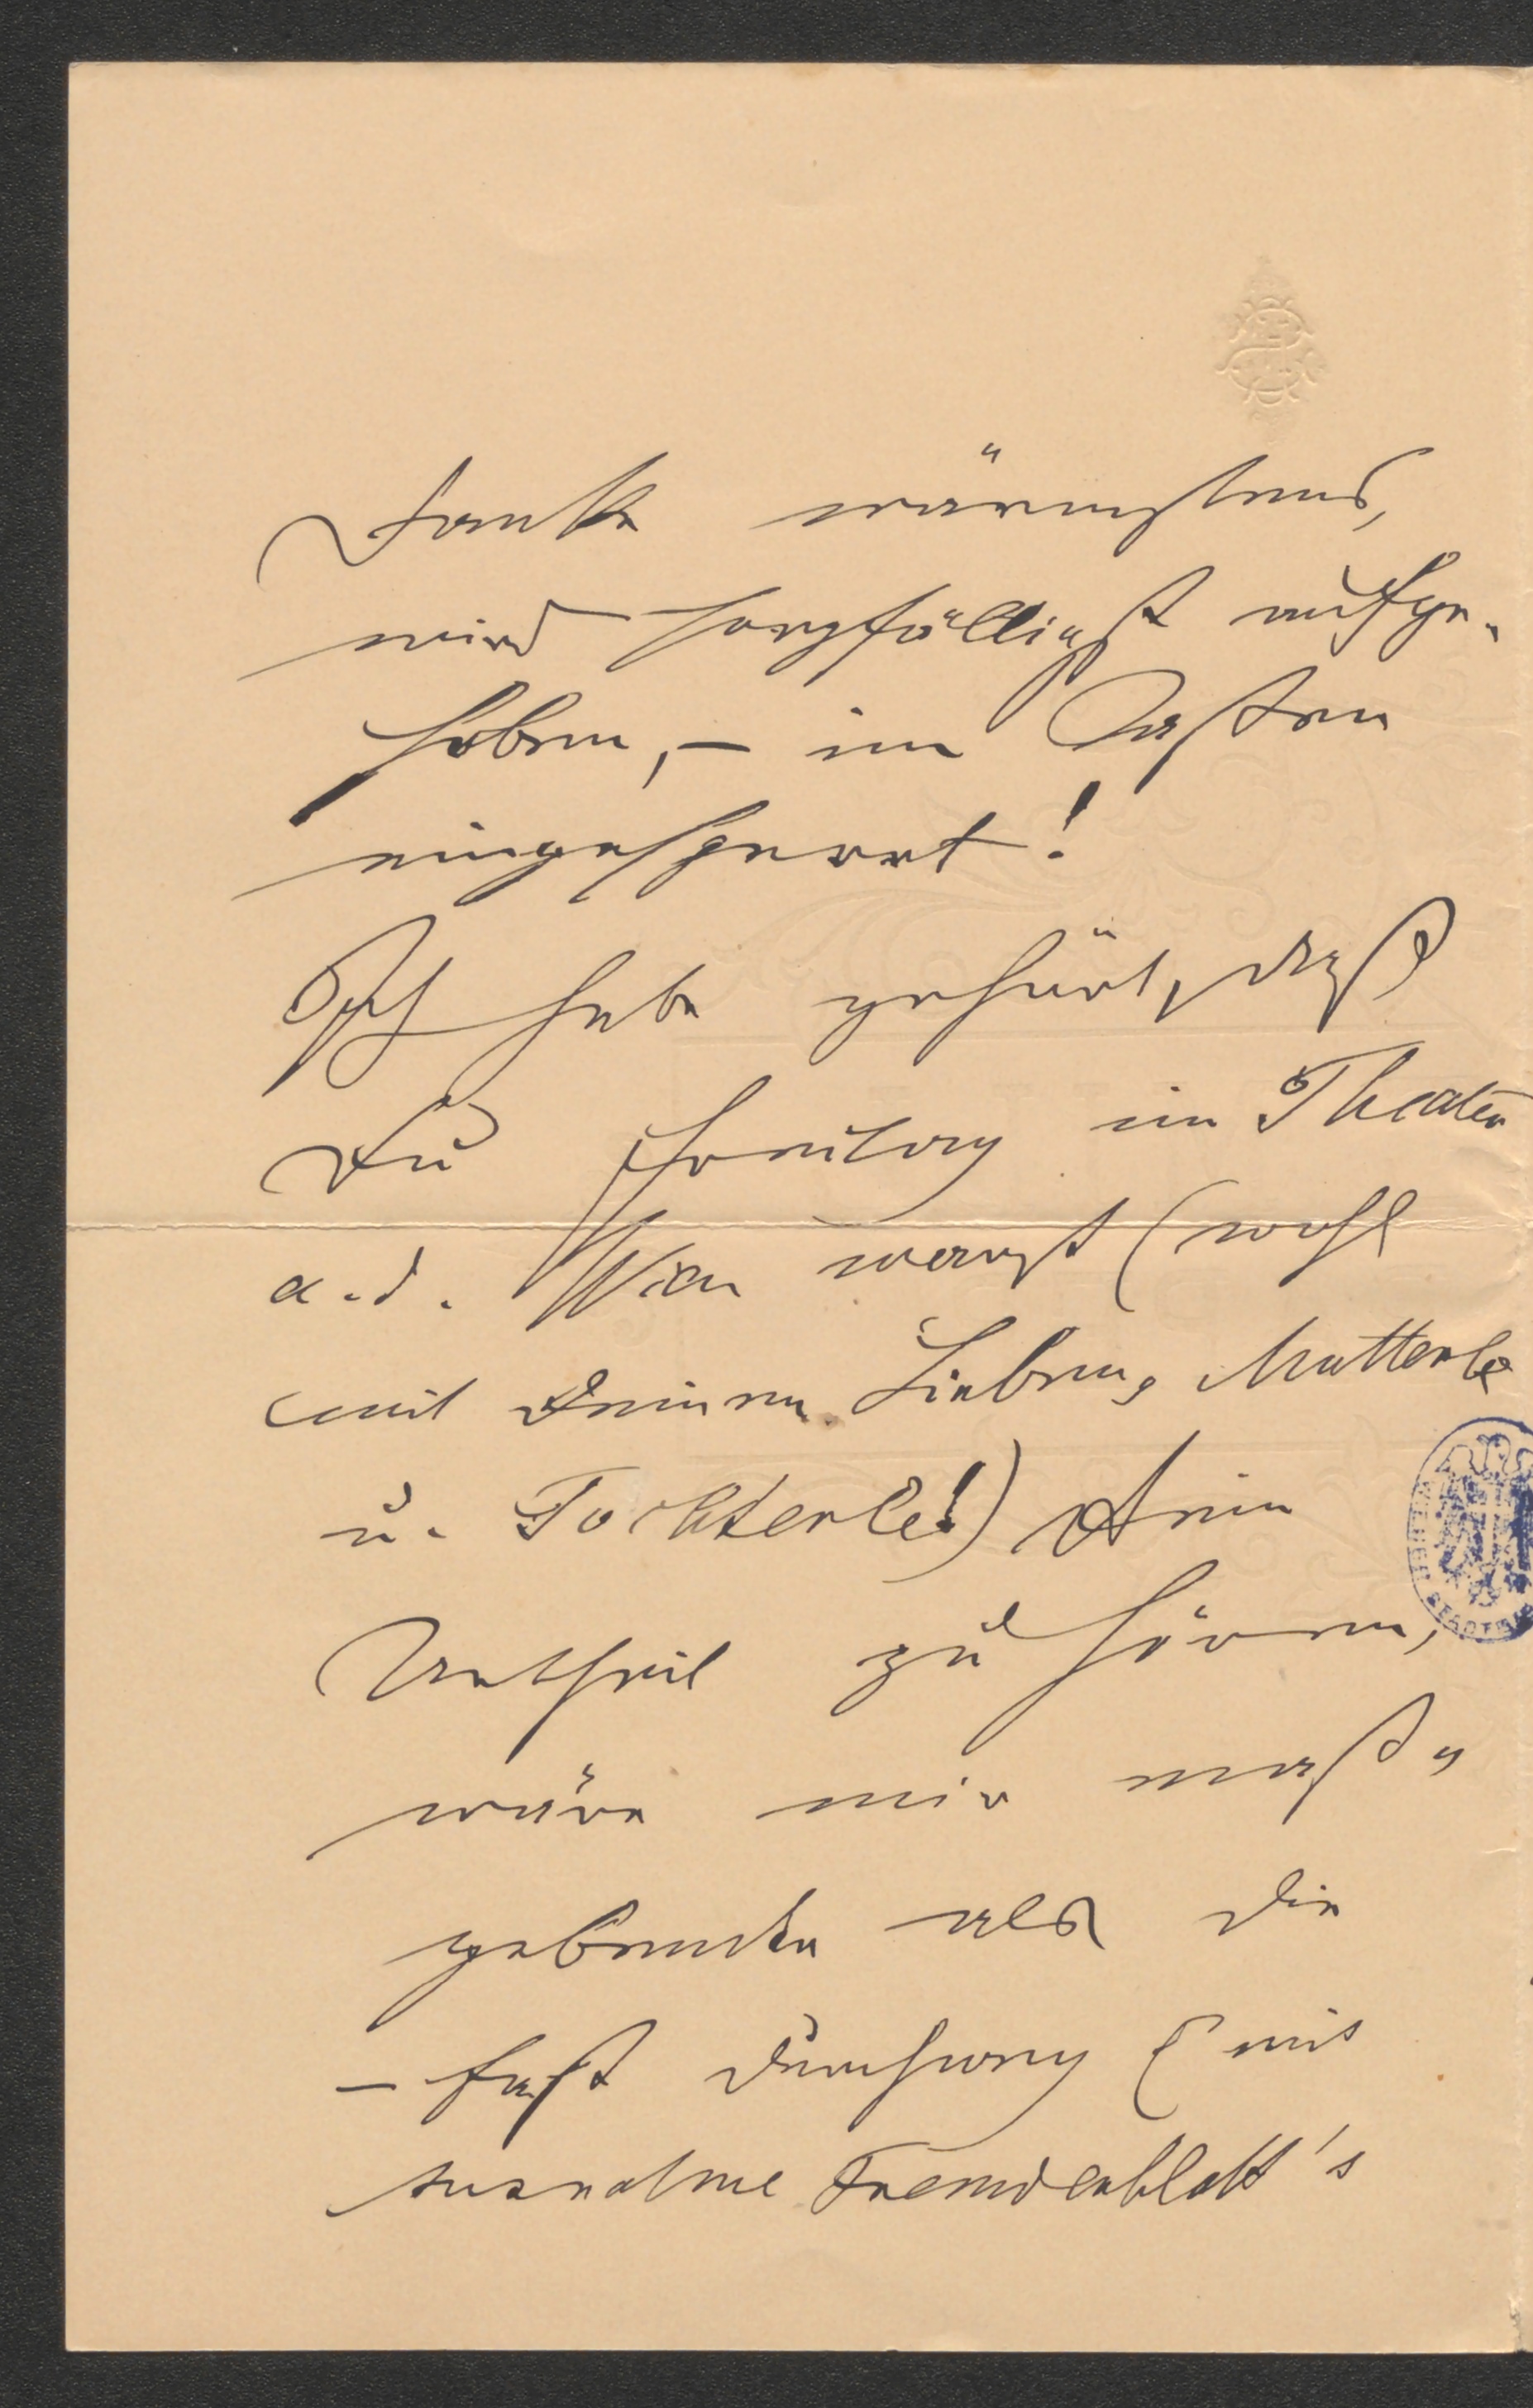 Danke wärmstens,
wird sorgfälligst aufge-
hoben, – im Casten
eingesperrt!
Ich habe gehört, daß
Du heutig im Theater
a. d. Wien warst (wohl
mit Deinem Lieben, Mutterle
u. Tochterle!) Dein
Urtheil zu hören,
wäre mir maß-
gebender als die
– fast durchweg (mit
Ausnahme Fremdenblatt's